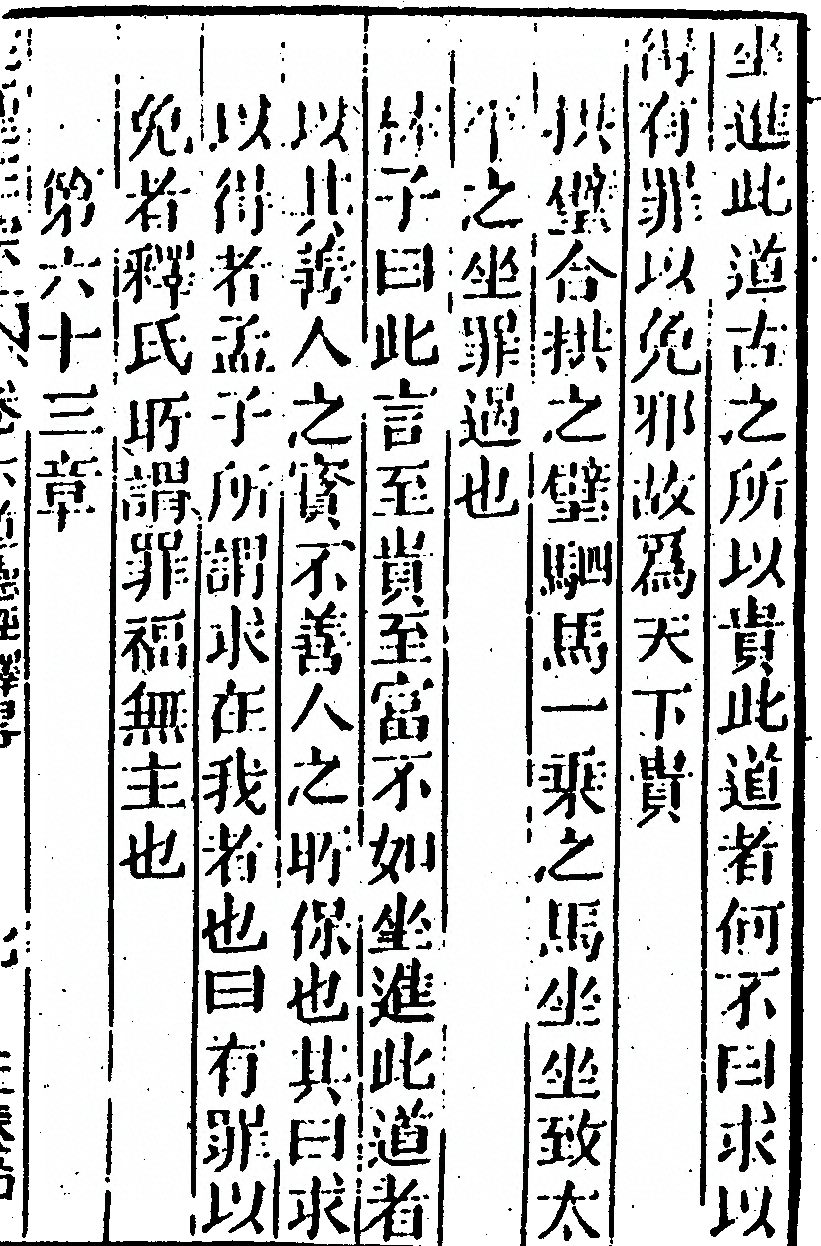 坐進此道古之所以貴此道者何不曰求以
得有罪以免邪故爲天下貴
拱璧合拱之璧駟馬一乘之馬坐坐致太
平之坐罪過也
林子曰此言至貴至富不如坐進此道者
以其善人之寶不善人之所保也其曰求
以得者孟子所謂求在我者也曰有罪以
免者釋氏所謂罪福無主也
第六十三章